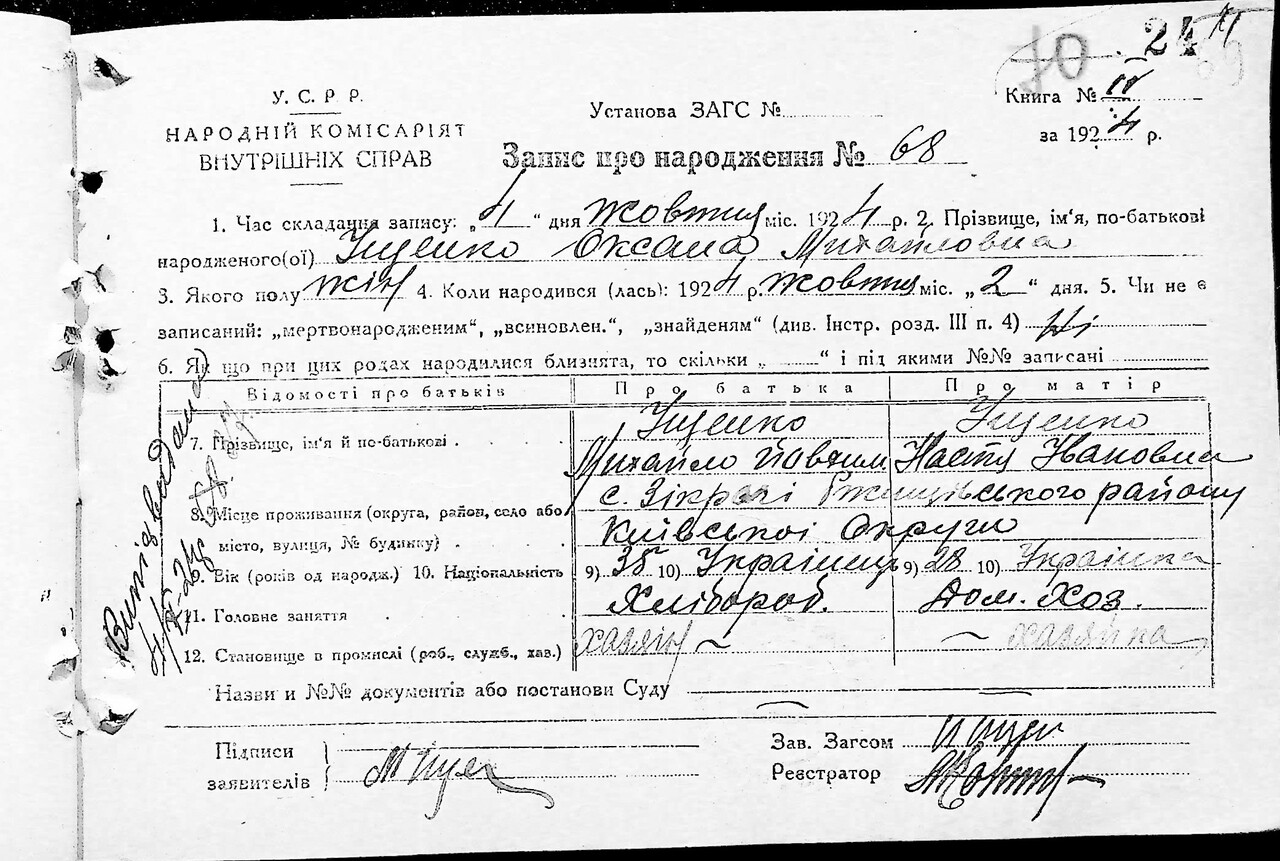 70 24
У. С. Р. Р.
НАРОДНІЙ КОМІСАРІЯТ
ВНУТРІШНІХ СПРАВ
Установа ЗАГС №
Книга № IV
за 1924 р.
Запис про народження № 68
1. Час складання запису: „4“ дня жовтня міс. 1924 р. 2. Прізвище, ім'я, по-батькові
народженого(ої) Іщенко Оксана Михайловна
3. Якого полу жін 4. Коли народився (лась): 1924 р. жовтня міс. „2“ дня. 5. Чи не є
записаний: „мертвонародженим“, „всиновлен.“, „знайденям“ (див. Інстр. розд. III п. 4) Ні
6. Як що при цих родах народилися близнята, то скільки „ “ і під якими №№ записані
Відомості про батьків Про батька Про матір
7. Прізвище, ім'я й по-батькові . Іщенко Іщенко
Михайло Йовхим Настя Івановна
8. Місце проживання (округа, район, село або
місто, вулиця, № будинку) .
с. Зікрачі Ржищівського району
Київської Округи
9. Вік (років од народж.) 10. Національність 9) 35 10) Українець 9) 28 10) Українка
11. Головне заняття . Хлібороб. Дом. Хоз.
12. Становище в промислі (роб., служб., хаз.) хазяїн ~ ~ хазяйка
Назви и №№ документів або постанови Суду
Підписи
заявителів
Зав. Загсом
Реєстратор